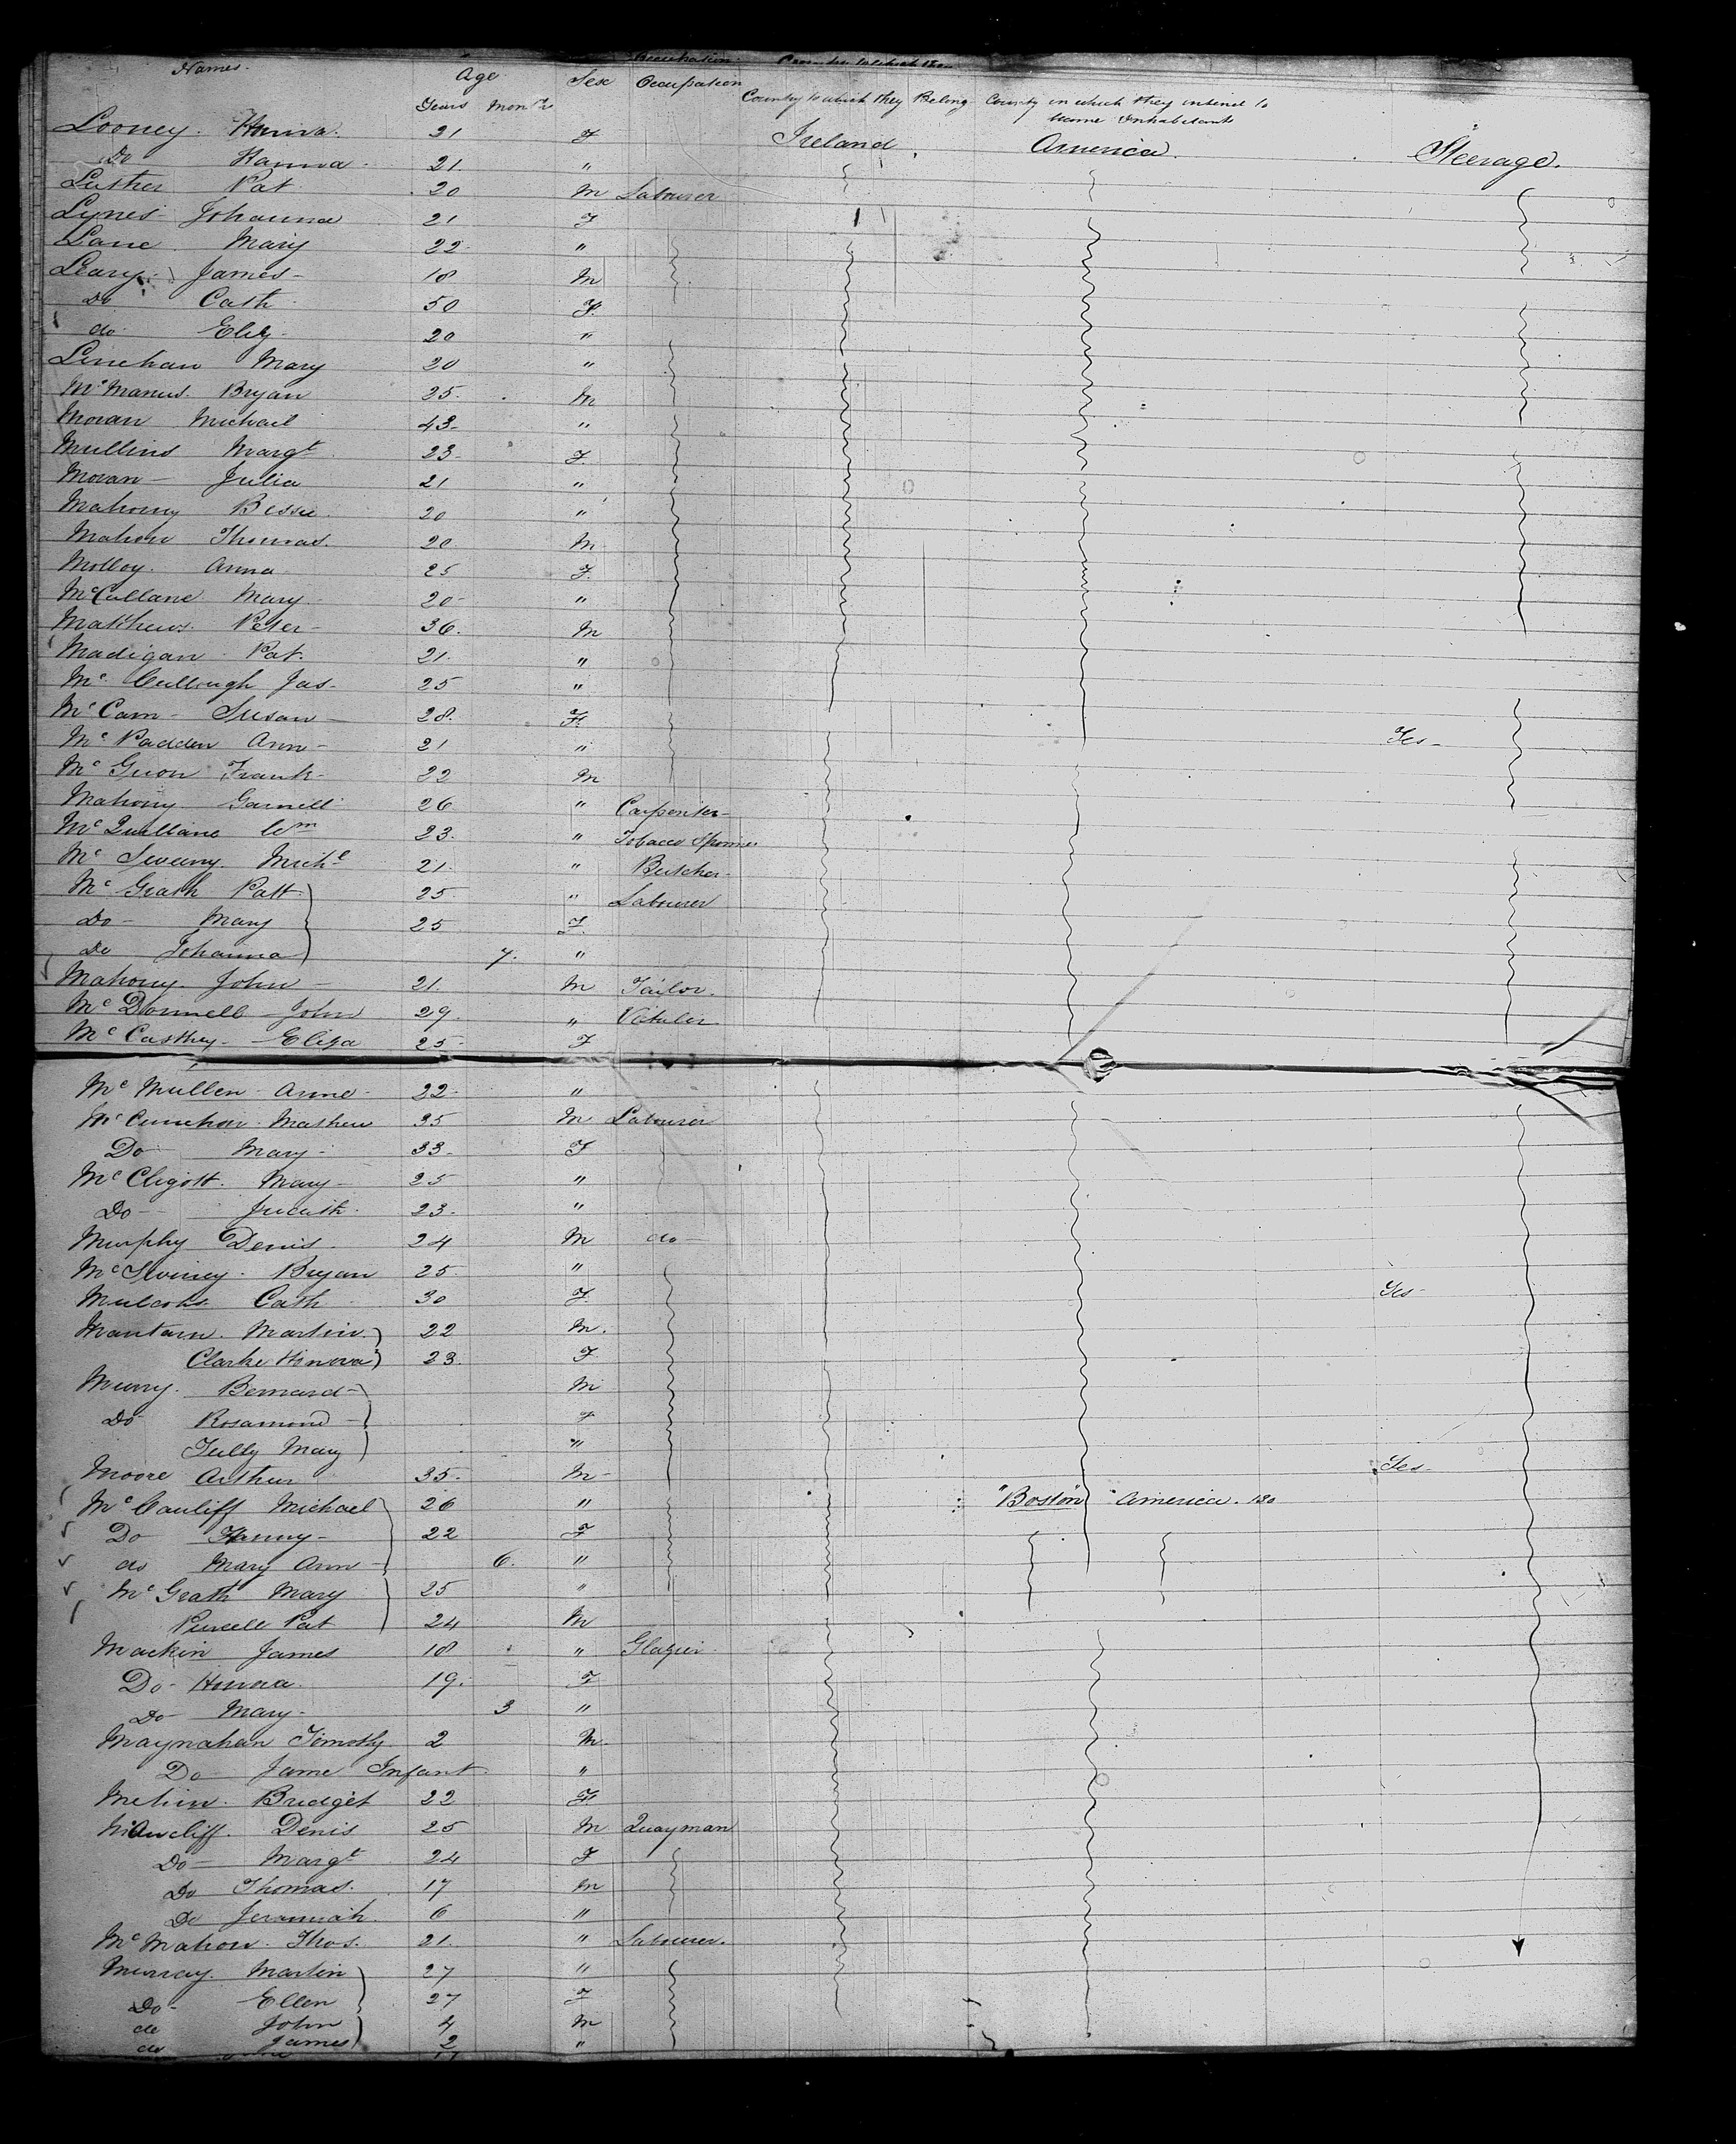 Names. Age Sex Occupation Country to which they Belong Country in which they intend to
Years Months become Inhabitants
Looney. Hanna. 21 F Ireland. America. Steerage.
Do Hanna. 21. "
Luther Pat 20 M Labourer
Lynes Johanna 21 F
Lane Mary 22 "
Leary. James - 18 M
Do Cath 50 F.
do Eliz. 20 "
Linehan Mary 20 "
McManus. Bryan 25. M
Moran Michael 43 - "
Mullins Margt. 23 - F.
Moran - Julia 21 "
Mahony Bessie 20 "
Mahon Thomas. 20 M
Molloy. Anna 25 F.
McCullane Mary 20 - "
Matthews. Peter - 36. M
Madigan Pat. 21. "
Mc Cullough Jas - 25 "
McCam - Susan - 28. F.
Mc Padden Ann - 21 " Yes -
Mc Guon Frank - 22 M
Mahony 26 " Carpenter -
McQuillane Wm 23. " Tobacco Spinner
Mc Sweeny. Michl 21. " Butcher -
Mc Grath Patt 25 " Labourer
Do - Mary 25 F
Do Johanna 7. "
Mahony. John - 21. M Tailor.
Mc Donnell - John 29. "
McCarthy - Eliza 25 - F
Mc Mullen - Anne - 22 - "
Mathew 35 M Labourer
Do Mary - 33 - F
McCligott. Mary - 25 "
Do - Judith. 23 - "
Murphy Denis. 24 M do -
McSwiney. Bryan 25. "
Cath 30 F. Yes -
Martin. 22 M.
Clarke Honora 23. F
Murry. Bernard - M
Do Rosamond - F
Tully Mary "
Moore Arthur 35. M - Yes -
McCauliff Michael 26 " "Boston" America. 130
Do Fanny - 22 F
do Mary Ann - 6. "
McGrath Mary 25 "
Purcell Pat 24 M
Mackin James 18 " Glazier.
Do - Honora. 19. F
Do Mary - 3 "
Maynahan Timothy 2 M.
Do Jame Infant "
Bridget 22 F.
Denis 25 M Quayman
Do - Margt 24 F
Do Thomas. 17 M
Do Jeramiah. 6 "
McMahon. Thos. 21. " Labourer.
Murray. Martin 27 "
Do - Ellen 27 F
do John 4 M
do James 2 "